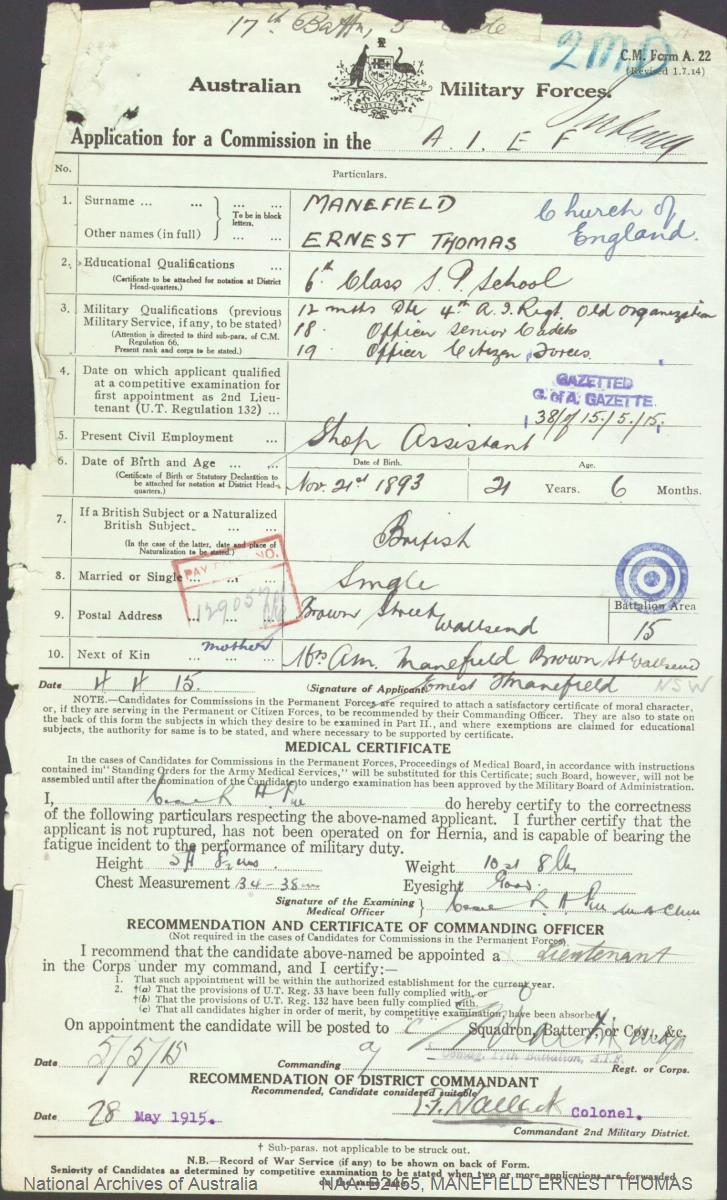 17th Battn, 5
2MD
C.M. Form A. 22
(Revised 1.7.14)
Australian Military Forces.
AUSTRALIA
Application for a Commission in the A. I. E F
No. Particulars.
1. Surname ... ... MANEFIELD
To be in block letters.
Other names (in full) ERNEST THOMAS
Church of England.
2. Educational Qualifications ... 6th Class S. P. School
(Certificate to be attached for notation at District Head-quarters.)
3. Military Qualifications (previous Military Service, if any, to be stated)
(Attention is directed to third sub-para. of C.M. Regulation 66.
Present rank and corps to be stated.)
12 mths 4th A. I. Regt. Old Organization
18 Officer Senior Cadets
19 Officer Citizen Forces.
4. Date on which applicant qualified at a competitive examination for first appointment as 2nd Lieutenant (U.T. Regulation 132) ...
GAZETTED
C. of A. GAZETTE.
38/of 15/5/15.
5. Present Civil Employment ... Shop Assistant
6. Date of Birth and Age ... ...
(Certificate of Birth or Statutory Declaration to be attached for notation at District Head-quarters.)
Date of Birth. Age.
Nov. 21st 1893 21 Years. 6 Months.
7. If a British Subject or a Naturalized British Subject. ... ...
(In the case of the latter, date and place of Naturalization to be stated.)
British
PAY NO.
8. Married or Single ... Single
9. Postal Address ... Brown Street Wallsend
Battalion Area
15
10. Next of Kin ... mother Mrs Am. Manefield Brown St Wallsend
NSW
Date 4 4 15. (Signature of Applicant) Ernest Manefield
NOTE.—Candidates for Commissions in the Permanent Forces are required to attach a satisfactory certificate of moral character,
or, if they are serving in the Permanent or Citizen Forces, to be recommended by their Commanding Officer. They are also to state on
the back of this form the subjects in which they desire to be examined in Part II., and where exemptions are claimed for educational
subjects, the authority for same is to be stated, and where necessary to be supported by certificate.
MEDICAL CERTIFICATE
In the cases of Candidates for Commissions in the Permanent Forces, Proceedings of Medical Board, in accordance with instructions
contained in "Standing Orders for the Army Medical Services," will be substituted for this Certificate; such Board, however, will not be
assembled until after the nomination of the Candidate to undergo examination has been approved by the Military Board of Administration.
I, do hereby certify to the correctness
of the following particulars respecting the above-named applicant. I further certify that the
applicant is not ruptured, has not been operated on for Hernia, and is capable of bearing the
fatigue incident to the performance of military duty.
Height 5 ft 8 ins. Weight 10 st 8 lbs
Chest Measurement 34 - 38 ins Eyesight Good.
Signature of the Examining Medical Officer
RECOMMENDATION AND CERTIFICATE OF COMMANDING OFFICER
(Not required in the cases of Candidates for Commissions in the Permanent Forces).
I recommend that the candidate above-named be appointed a Lieutenant
in the Corps under my command, and I certify:—
1. That such appointment will be within the authorized establishment for the current year.
2. †(a) That the provisions of U.T. Reg. 33 have been fully complied with, or
†(b) That the provisions of U.T. Reg. 132 have been fully complied with.
(c) That all candidates higher in order of merit, by competitive examination, have been absorbed
On appointment the candidate will be posted to "C" Squadron, Battery, or Coy., &c.
Date 5/5/15 Commanding Comdg. 17th Battalion, A.I.F.
Regt. or Corps.
RECOMMENDATION OF DISTRICT COMMANDANT
Recommended, Candidate considered suitable
Date 28 May 1915. Wallack Colonel.
Commandant 2nd Military District.
† Sub-paras. not applicable to be struck out.
N.B.—Record of War Service (if any) to be shown on back of Form.
Seniority of Candidates as determined by competitive examination to be stated when two or more applications are forwarded
on the same date.
National Archives of Australia NAA: B2455, MANEFIELD ERNEST THOMAS